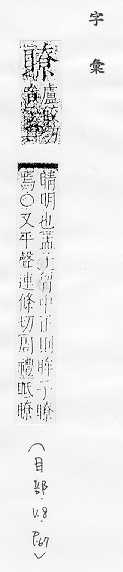 字彙
瞭
盧
切
睛明也孟子胷中正則眸子瞭
焉○又平聲連條切周禮眡瞭
(目部.v.8 p.67)